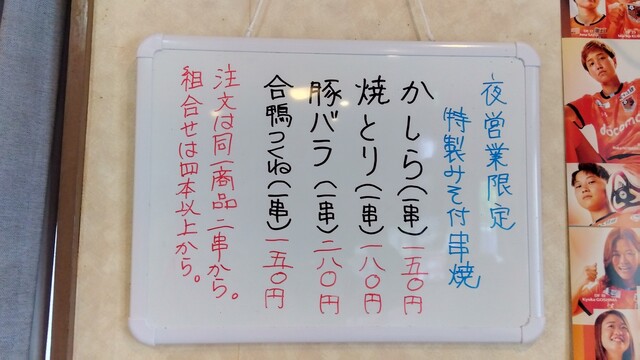 夜営業限定
特製みそ付串焼
かしら(一串)一五〇円
焼とり(一串)一八〇円
豚バラ(一串)二八〇円
合鴨つくね(一串)一五〇円
注文は同一商品二串から。
組合せは四本以上から。
docomo